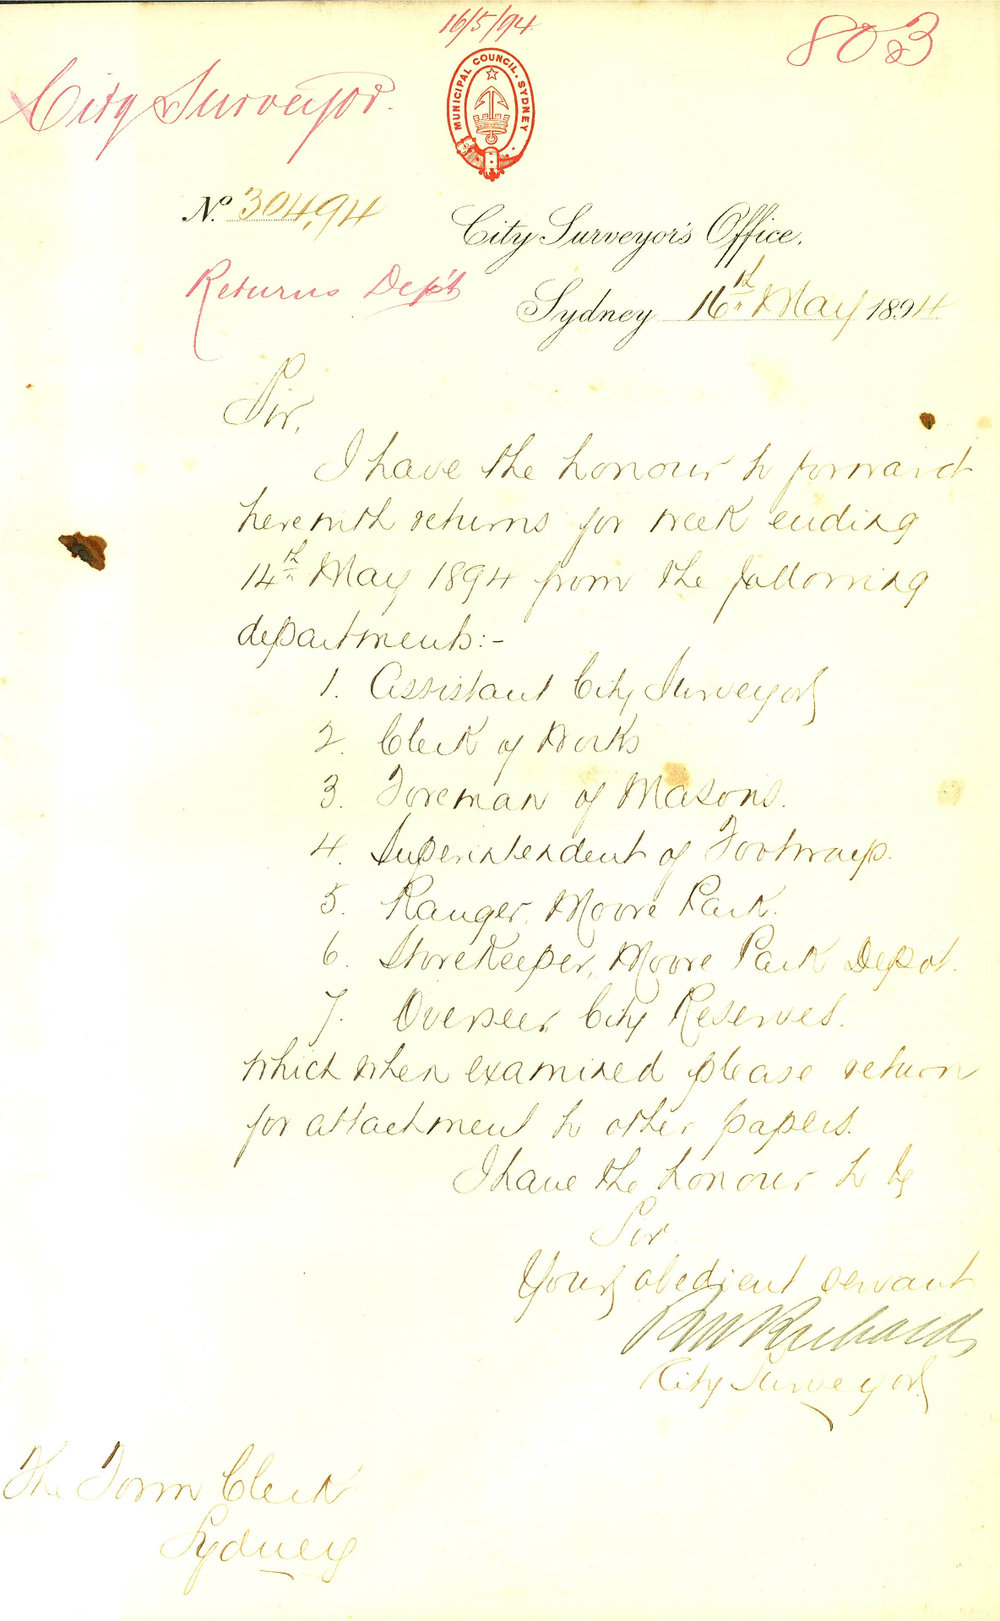 16/5/94
803
City Surveyor.
MUNICIPAL COUNCIL. SYDNEY.
No. 304,94
City Surveyor's Office,
Returns Dep't
Sydney 16th May 1894
Sir,
I have the honour to forward
herewith returns for week ending
14th May 1894 from the following
departments:-
1. Assistant City Surveyor
2. Clerk of Works
3. Foreman of Masons.
4. Superintendent of Footways.
5. Ranger, Moore Park.
6. Storekeeper, Moore Park Depot.
7. Overseer, City Reserves.
which when examined please return
for attachment to other papers.
I have the honour to be
Sir
Your obedient servant
Richards
City Surveyor
The Town Clerk
Sydney